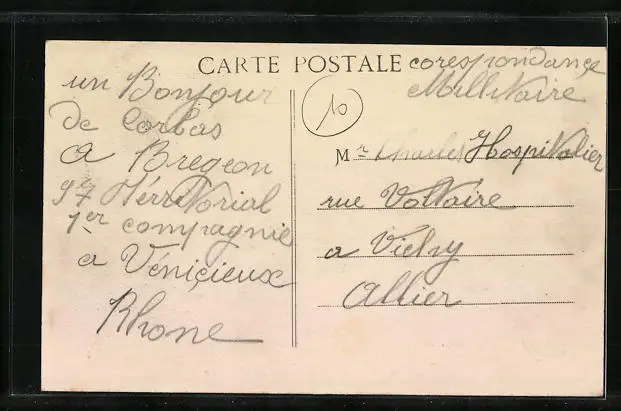 CARTE POSTALE corespondançe
Millitaire
un Bonjour
de Corbas
a Bregeon
97 Térritorial
1er compagnie
a Véniçieux
Rhone
10
Mr Charles Hospitalier
rue Voltaire
a Vichy
Allier